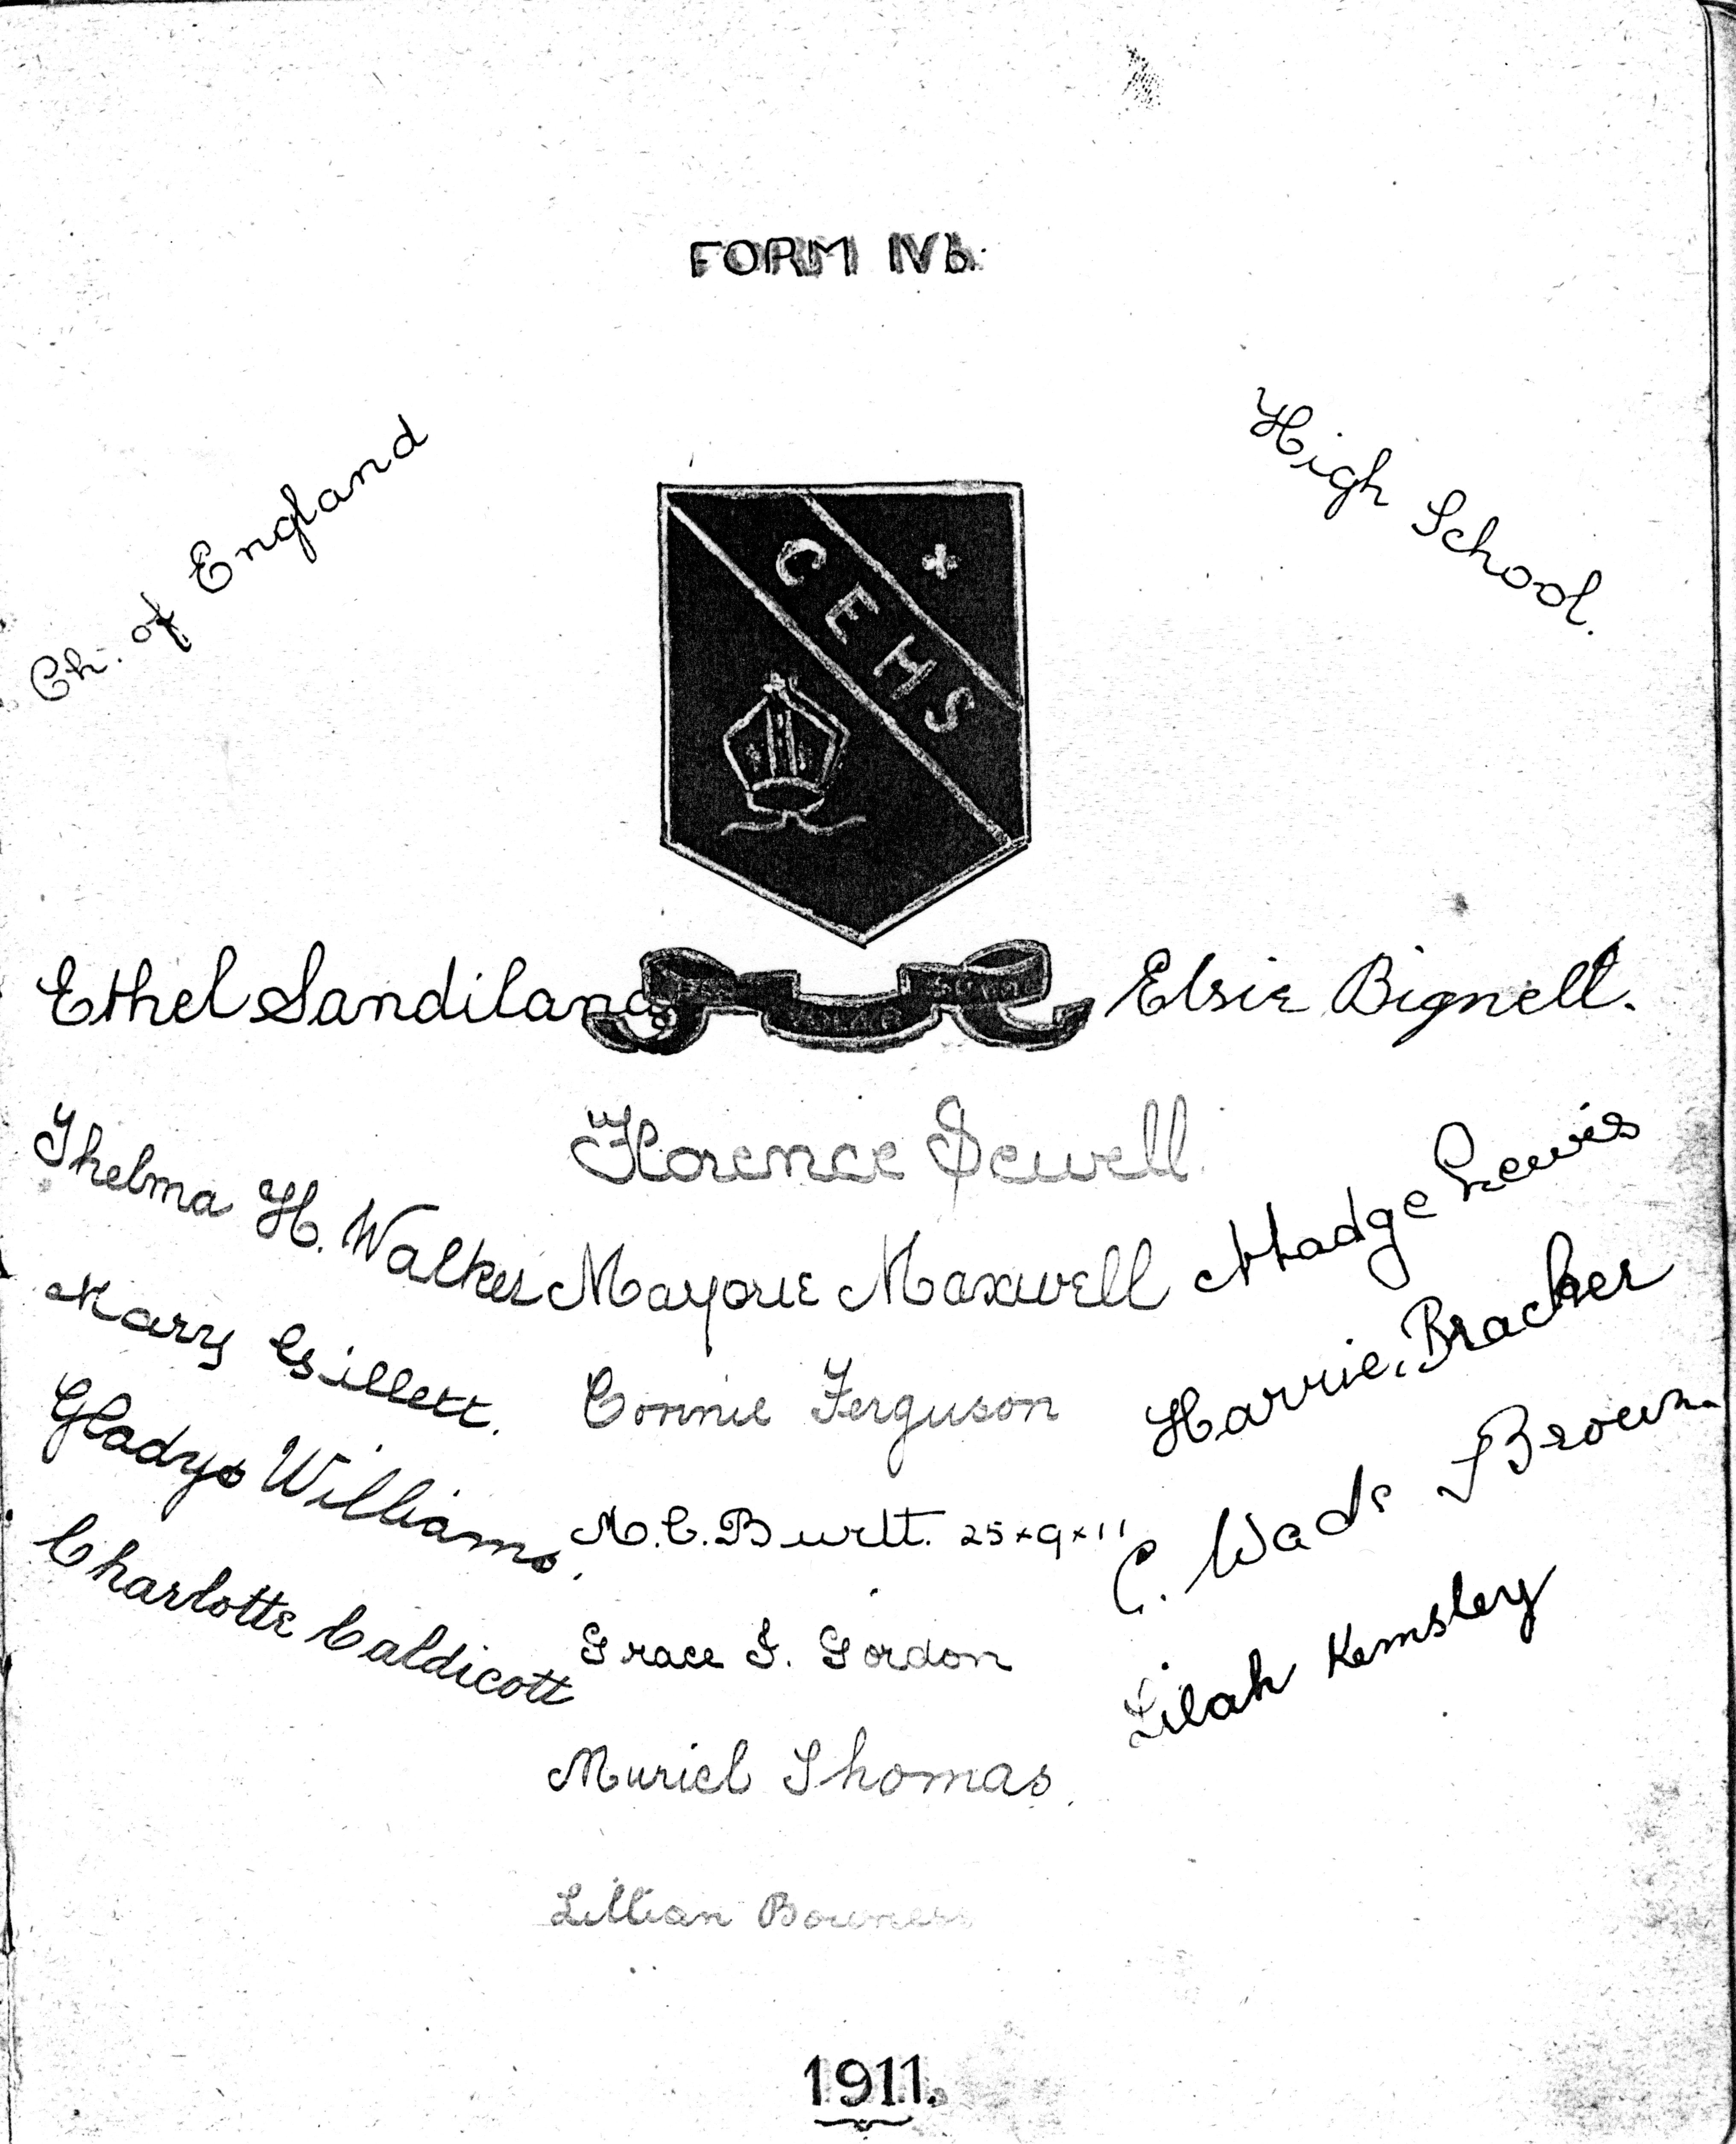 FORM IVb.
Ch. of England
High School.
CEHS
Ethel Sandilands
Elsie Bignell.
Florence Sewell
Thelma H. Walker
Marjorie Maxwell
Madge Lewis
Mary Gillett.
Connie Ferguson
Harrie Bracker
Gladys Williams.
M.C. Burtt. 25×9×11
C. Wade Brown
Charlotte Caldicott
Grace I. Gordon
Lilah Kemsley
Muriel Thomas.
Lillian Bowness
1911.